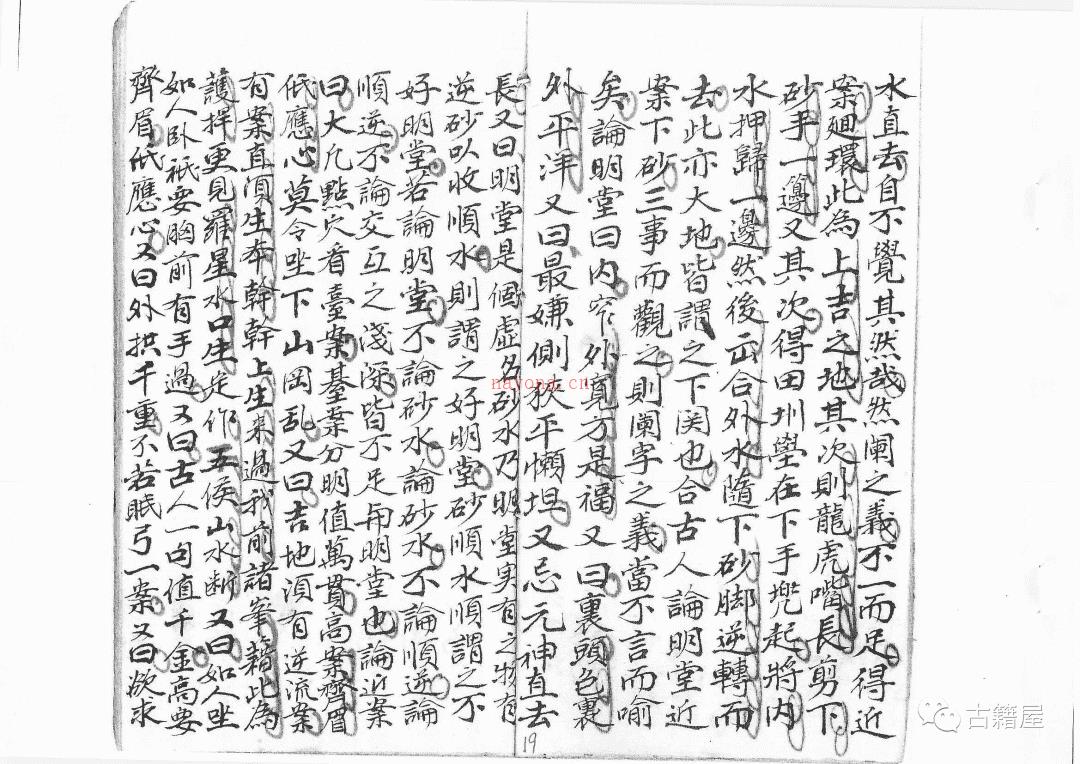 水直去自不覺其洪哉然闌之義不一而足得近
案廻環此為上吉之地其次則龍虎嘴長剪下
砂手一邊又其次得田圳壆在下手兜起將内
水押歸一邊然後正合外水隨下砂脚逆轉而
去此亦大地皆謂之下関也合古人論明堂近
案下砂三事而觀之則闌字之義當不言而喻
矣論明堂曰内窄外寛方是福又曰裏頭色裏
外平洋又曰最嫌側狹平懶坦又忌元神直去
長又曰明堂是個虛名砂水乃明堂实有之物有
逆砂以收順水則謂之好明堂砂順水順謂之不
好明堂若論明堂不論砂水論砂水不論順逆論
順逆不論交互之淺深皆不足與明堂也論近案
曰大凡點穴看臺案基案分明值萬貫高案齊眉
低應心莫令坐下山岡乱又曰吉地須有逆流案
有案直須生本幹幹上生來過我前諸峯藉此為
護捍更見羅星水口生定作五侯山水断又曰如人坐
如人卧衹要胸前有手過又曰古人一句值千金高要
齊眉低應心又曰外拱千重不若眠弓一案又曰欲求
19
nayona.cn
古籍屋